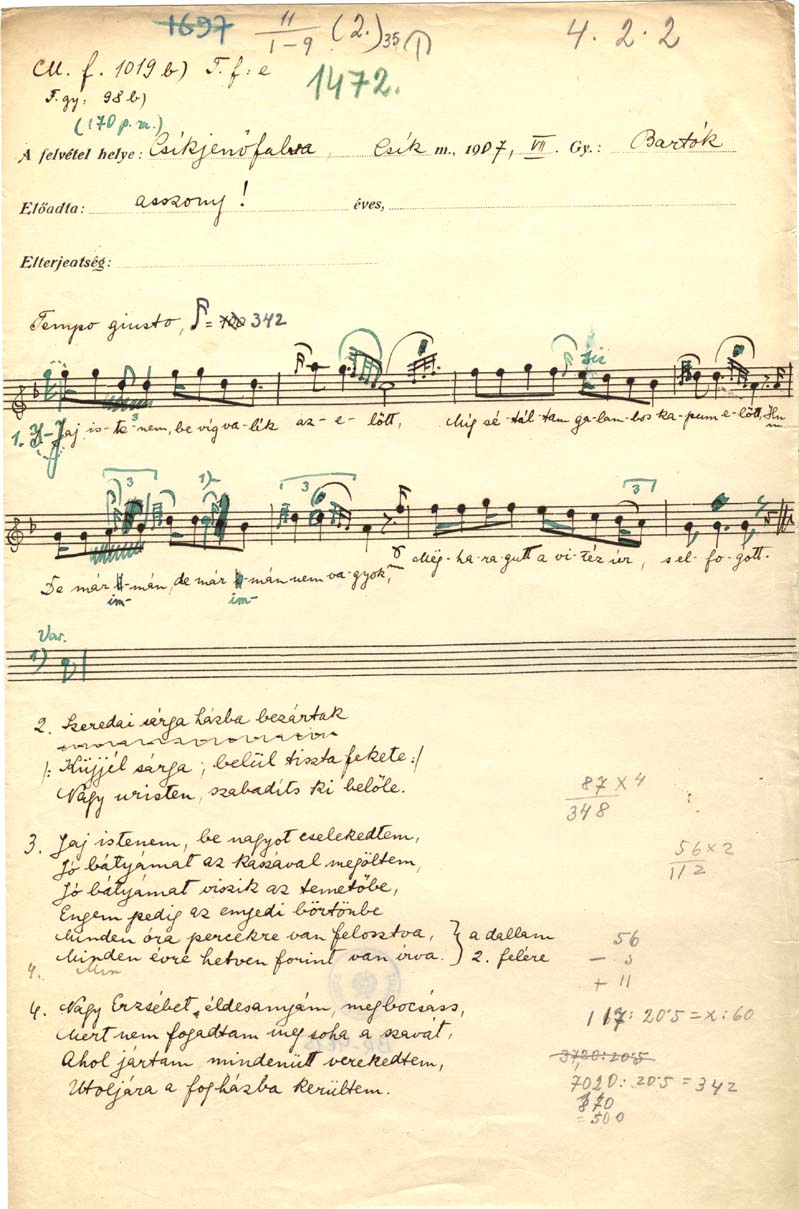 1697 11/1-9 (2.) 35 4. 2. 2
M. f. 1019 b) T. f: e
1472.
T. gy: 98 b)
(170 p. m.)
A felvétel helye: Csíkjenőfalva, Csík m., 1907, VII. Gy.: Bartók
Előadta: asszony! éves,
Elterjeatség:
Tempo giusto, ♪= 342
sic
3
1. Jaj is-te-nem, be víg va-lék az-e-lőtt, Míg sé-tál-tam ga-lam-bos ka-pum e-lőtt, Hn
3 1) 3 3
De már -mán, de már -mán nem va-gyok, Meg-ha-ra-gutt a vi-téz úr, s el-fo-gott.
im- im-
Var.
1)
2. Szeredai sárga házba bezártak
|: Küjjél sárga; belül tiszta fekete :|
Nagy uristen, szabadíts ki belőle.
87 x 4
348
3. Jaj istenem, be nagyot cselekedtem,
Jó bátyámat az kaszával megöltem,
56 x 2
112
Jó bátyámat viszik az temetőbe,
Engem pedig az enyedi börtönbe
Minden óra percekre van felosztva, } a dallam
Minden évre hetven forint van írva. } 2. felére
56
- 3
+ 11
4. Min
4. Nagy Erzsébet, éldesanyám, megbocsáss,
Mert nem fogadtam meg soha a szavát,
117: 20·5 = x: 60
Ahol jártam, mindenütt verekedtem,
3720: 20·5
Utoljára a fogházba kerültem.
7020: 20·5 = 342
870
= 500